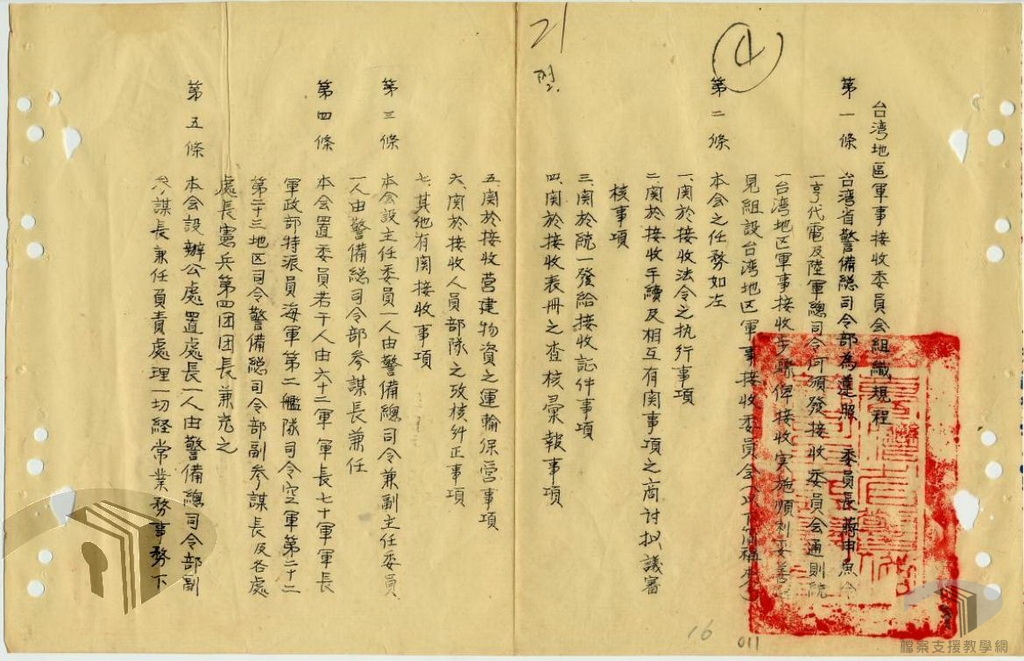 21
④
台湾地區軍事接收委員会組織規程
第一條 台湾省警備總司令部為遵照 委員長蔣申魚令
一亨代電及陸軍總司令何頒發接收委員会通則統
一台湾地区軍事接收步驟俾接收实施順利妥善
見組設台湾地区軍事接收委員会以下簡稱本
第二條 本会之任務如左
一、関於接收法令之执行事項
二、関於接收手續及相互有関事項之商讨拟議審
核事項
三、関於統一發給接收証件事項
四、関於接收表冊之查核彙報事項
五、関於接收营建物資之運輸保管事項
六、関於接收人員部隊之攷核糾正事項
七、其他有関接收事項
第三條 本会設主任委員一人由警備總司令兼副主任委員
一人由警備總司令部参謀長兼任
第四條 本会置委員若干人由六十二軍軍長七十軍軍長
軍政部特派員海軍第二艦隊司令空軍第二十二
第二十三地区司令警備總司令部副参謀長及各處
處長憲兵第四团团長兼充之
第五條 本会設辦公處置處長一人由警備總司令部副
参謀長兼任負責處理一切経常業務事務下
16
011
檔案支援教學網